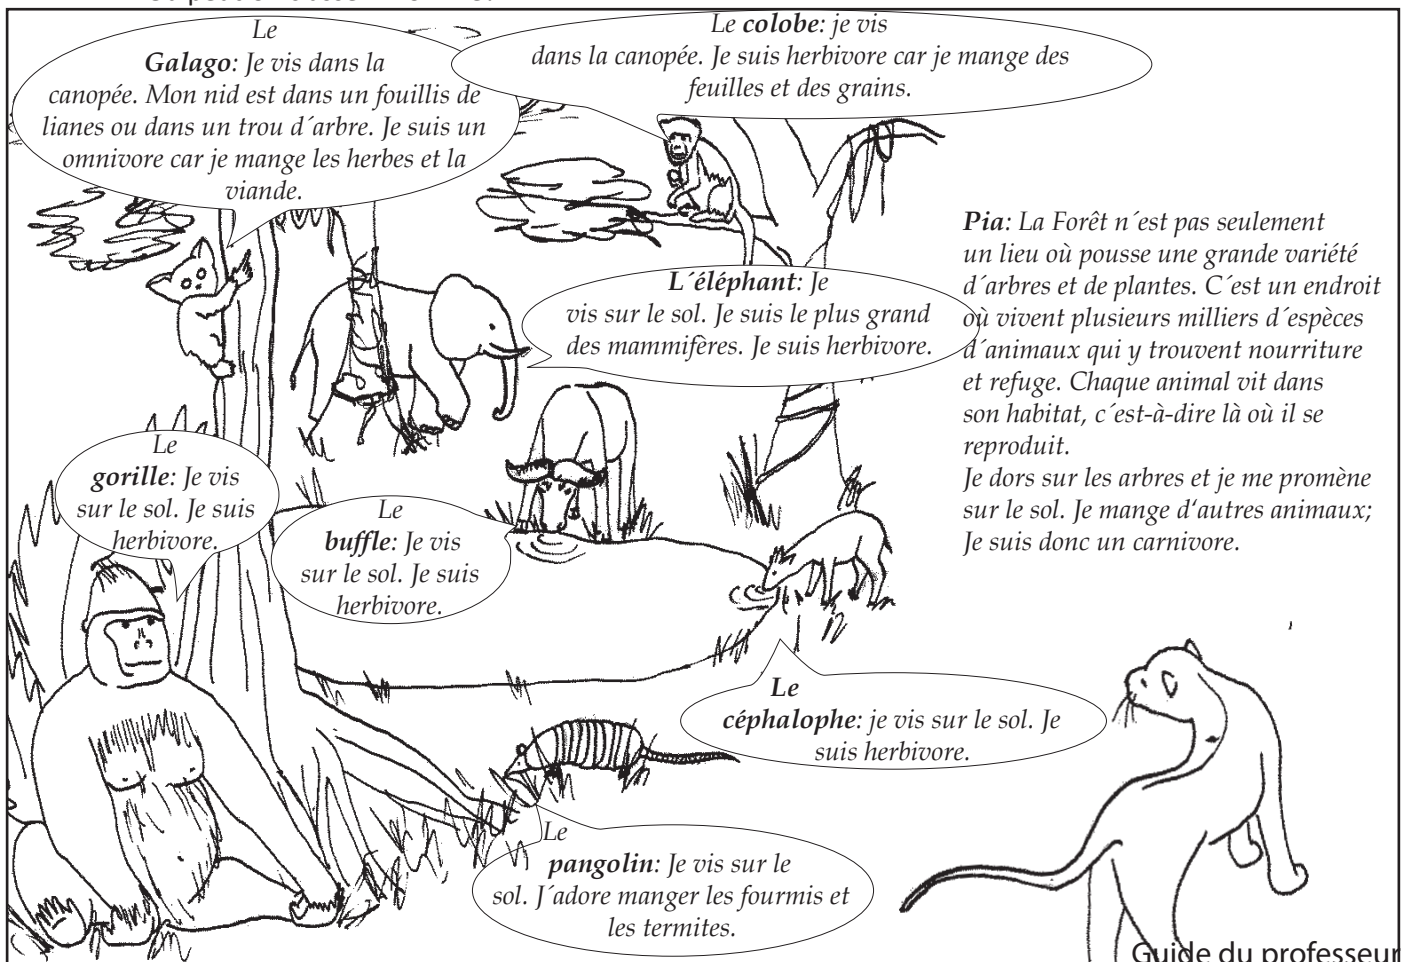 Le
Galago: Je vis dans la
canopée. Mon nid est dans un fouillis de
lianes ou dans un trou d´arbre. Je suis un
omnivore car je mange les herbes et la
viande.
Le colobe: je vis
dans la canopée. Je suis herbivore car je mange des
feuilles et des grains.
Pia: La Forêt n´est pas seulement
un lieu où pousse une grande variété
d´arbres et de plantes. C´est un endroit
où vivent plusieurs milliers d´espèces
d´animaux qui y trouvent nourriture
et refuge. Chaque animal vit dans
son habitat, c´est-à-dire là où il se
reproduit.
Je dors sur les arbres et je me promène
sur le sol. Je mange d‘autres animaux;
Je suis donc un carnivore.
L´éléphant: Je
vis sur le sol. Je suis le plus grand
des mammifères. Je suis herbivore.
Le
gorille: Je vis
sur le sol. Je suis
herbivore.
Le
buffle: Je vis
sur le sol. Je suis
herbivore.
Le
céphalophe: je vis sur le sol. Je
suis herbivore.
Le
pangolin: Je vis sur le
sol. J´adore manger les fourmis et
les termites.
Guide du professeur